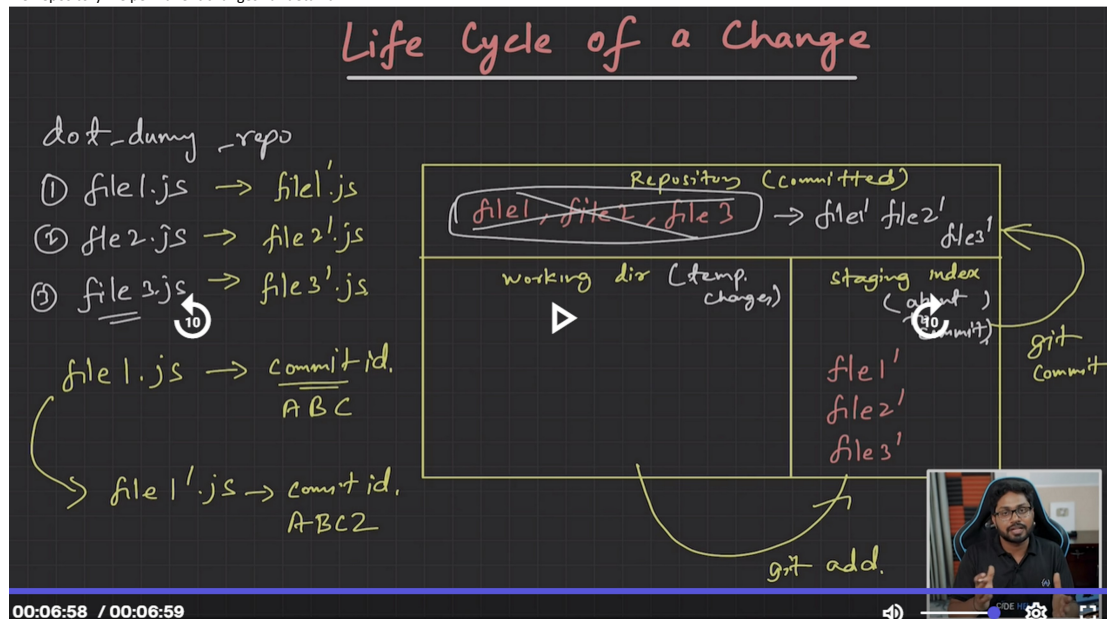 Life Cycle of a Change
dot_dumy_repo
① file1.js → file1'.js
② fle2.js → file2'.js
③ file3.js → file3'.js
file1.js → commit id.
ABC
file1'.js → commit id.
ABC2
Repository (committed)
file1, file2, file3 → file1' file2'
file3'
working dir (temp.
changes)
staging index
(about
commit)
file1'
file2'
file3'
git
commit
git add.
10
10
00:06:58 / 00:06:59